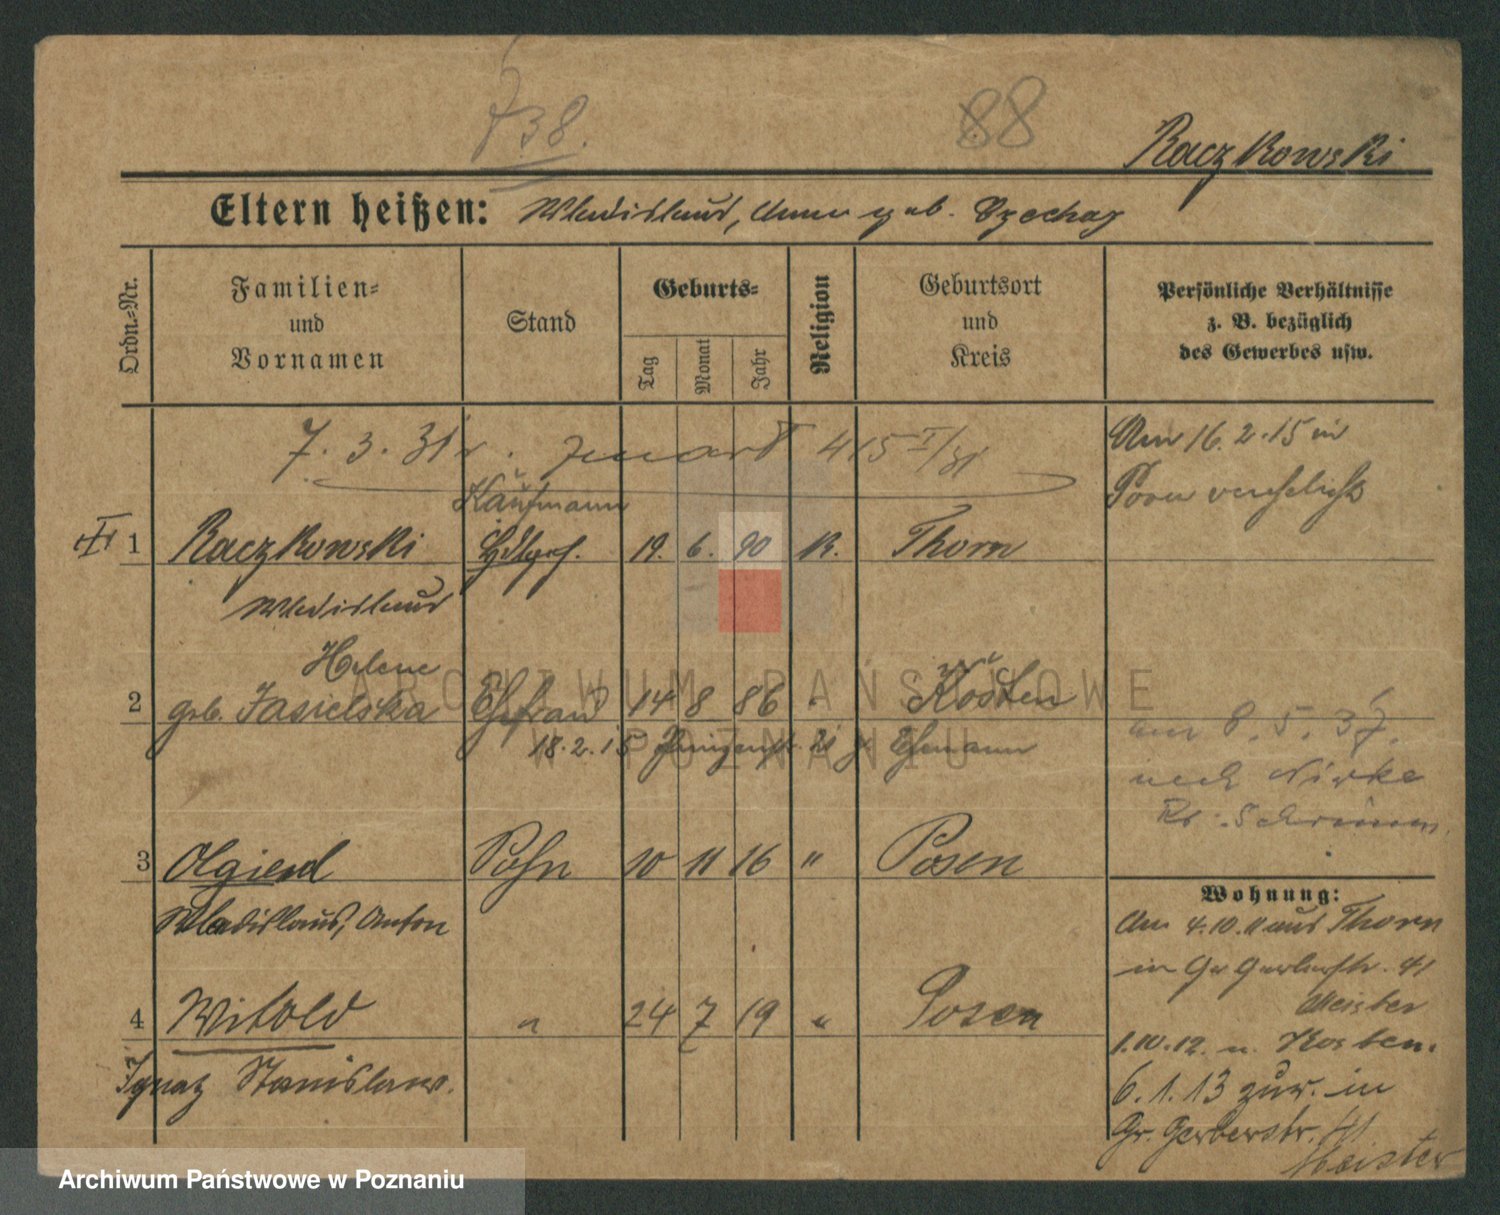 738.
88
Raczkowski
Eltern heißen: Wladislaus, Anna geb. Czechay
Ordn.-Nr.
Familien-
und
Vornamen
Stand
Geburts-
Tag
Monat
Jahr
Religion
Geburtsort
und
Kreis
Persönliche Verhältnisse
z. B. bezüglich
des Gewerbes usw.
7. 3. 31 415 I/31
Am 16.2.15 in
verehelicht
Kaufmann
1 Raczkowski Hdlgsh. 19. 6. 90 K. Thorn
Wladislaus
Helene
2 geb. Jasielska Ehefrau 14 8 86 " Kosten
18.2.15 21 z. Ehemann
am 8. 5. 37.
nach Nirke
Kr. Schrimm.
3 Olgierd Sohn 10 11 16 " Posen
Wladislaus, Anton
Wohnung:
Am 4.10.11 aus Thorn
in Gr Gerberstr. 41
Meister
4 Witold " 24 7 19 " Posen
1.10.12. n. Kosten.
Ignaz Stanislaus.
6.1.13 zur. in
Gr. Gerberstr. 41.
Meister
ARCHIWUM PAŃSTWOWE
W POZNANIU
Archiwum Państwowe w Poznaniu